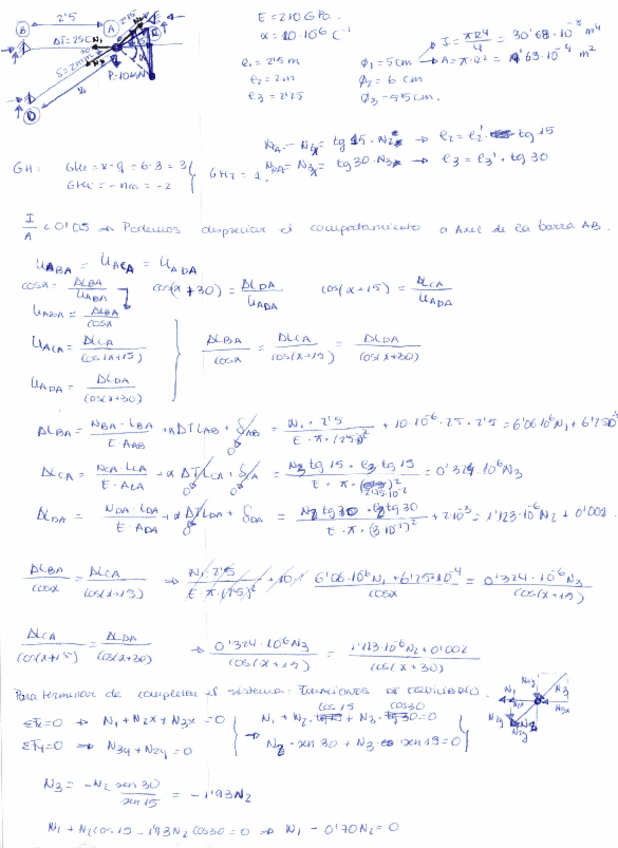 2'5
B
A
C
D
ΔT=25C
N₁
δ=2mm
P=10kN
E = 210 GPa.
α = 10·10⁻⁶ C⁻¹
l₁ = 2'5 m
l₂ = 2 m
l₃ = 2'25
ϕ₁ = 5cm → I = πR⁴/4 = 30'68·10⁻⁸ m⁴
→ A = π·R² = 19'63·10⁻⁴ m²
ϕ₂ = 6 cm
ϕ₃ = 5'5cm.
→ l₂ = l₂' tg 15
→ l₃ = l₃' · tg 30
GH: GHe = r-q = 6-3 = 3
GHi = -nca = -2
GHT = 1.
I/A < 0'05 → Podemos despreciar el comportamiento a Axil de la barra AB.
u_ABA = u_ACA = u_ADA
cosα = ΔL_BA/u_ABA cos(α+30) = ΔL_DA/u_ADA cos(α+15) = ΔL_CA/u_ADA
u_ABA = ΔL_BA/cosα
u_ACA = ΔL_CA/cos(α+15) ΔL_BA/cosα = ΔL_CA/cos(α+15) = ΔL_DA/cos(α+30)
u_ADA = ΔL_DA/cos(α+30)
ΔL_BA = N_BA·L_BA/E·A_AB + αΔTL_AB + δ_AB = N₁·2'5/E·π·(25)² + 10·10⁻⁶·25·2'5 = 6'06·10⁶N₁ + 6'25·10
ΔL_CA = N_CA·L_CA/E·A_CA + αΔTL_CA + δ_CA = N₃ tg15·l₃ tg15/E·π·( )² = 0'324·10⁻⁶N₃
ΔL_DA = N_DA·L_DA/E·A_DA + αΔTL_DA + δ_DA = N₂ tg30·l₂ tg30/E·π·(3·10⁻²)² + 2·10⁻³ = 1'123·10⁻⁶N₂ + 0'002.
ΔL_BA/cosα = ΔL_CA/cos(α+15) ⇒ 6'06·10⁶N₁ + 6'25·10⁻⁴/cosα = 0'324·10⁻⁶N₃/cos(α+15)
ΔL_CA/cos(α+15) = ΔL_DA/cos(α+30) → 0'324·10⁻⁶N₃/cos(α+15) = 1'123·10⁻⁶N₂+0'002/cos(α+30)
Para terminar de completar el sistema: Ecuaciones de equilibrio.
ΣFx=0 ⇒ N₁ + N₂x + N₃x = 0 N₁ + N₂· cos15 + N₃· cos30 =0
ΣFy=0 ⇒ N₃y + N₂y = 0 → N₂·sen 30 + N₃ sen 15 = 0
N₃ = -N₂ sen 30/sen 15 = -1'93N₂
N₁ + N₂cos15 - 1'93N₂ cos30 = 0 ⇒ N₁ - 0'70N₂ = 0